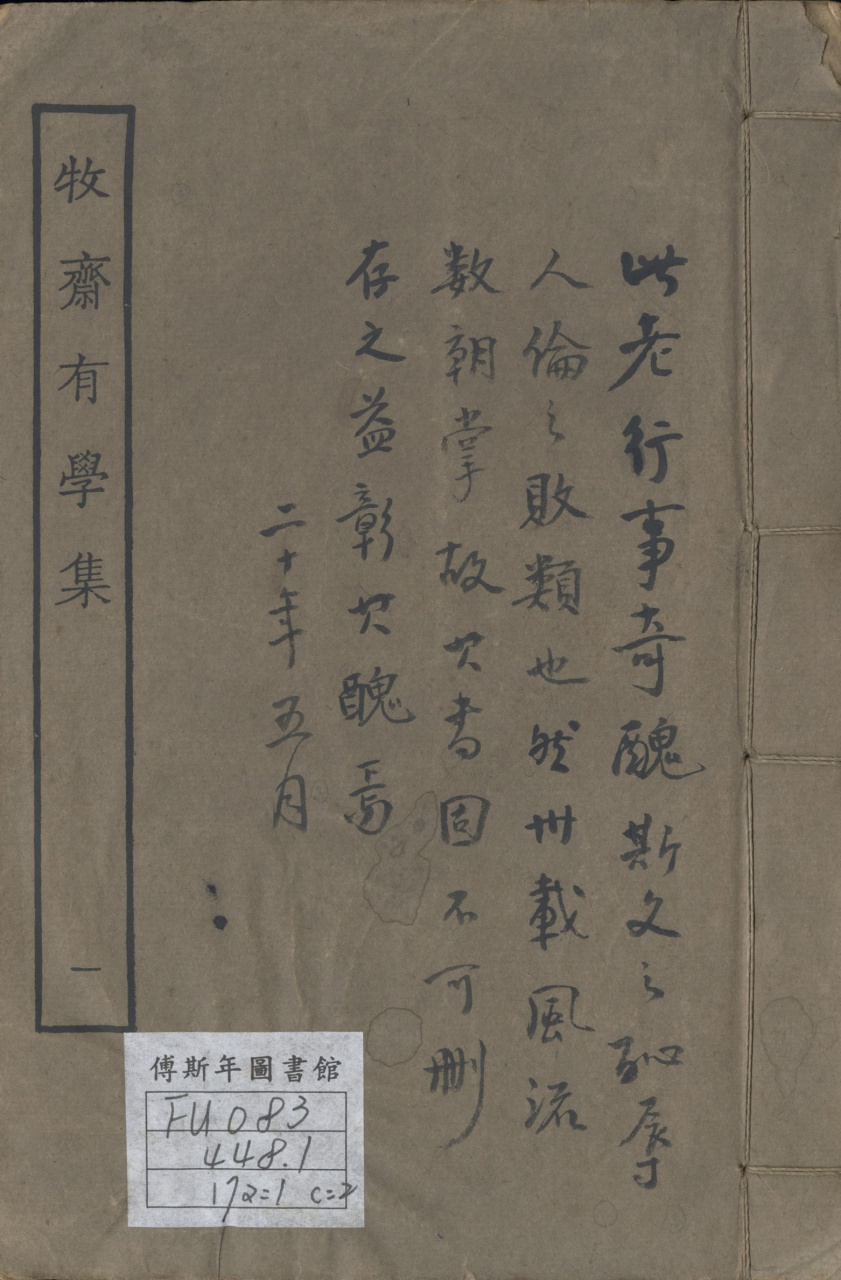 此老行事奇醜斯文之恥辱
人倫之敗類也然卅載風流
数朝掌故其書固不可删
存之益彰其醜焉
二十年五月
牧齋有學集
一
傅斯年圖書館
FU 083
448.1
172=1 c=2